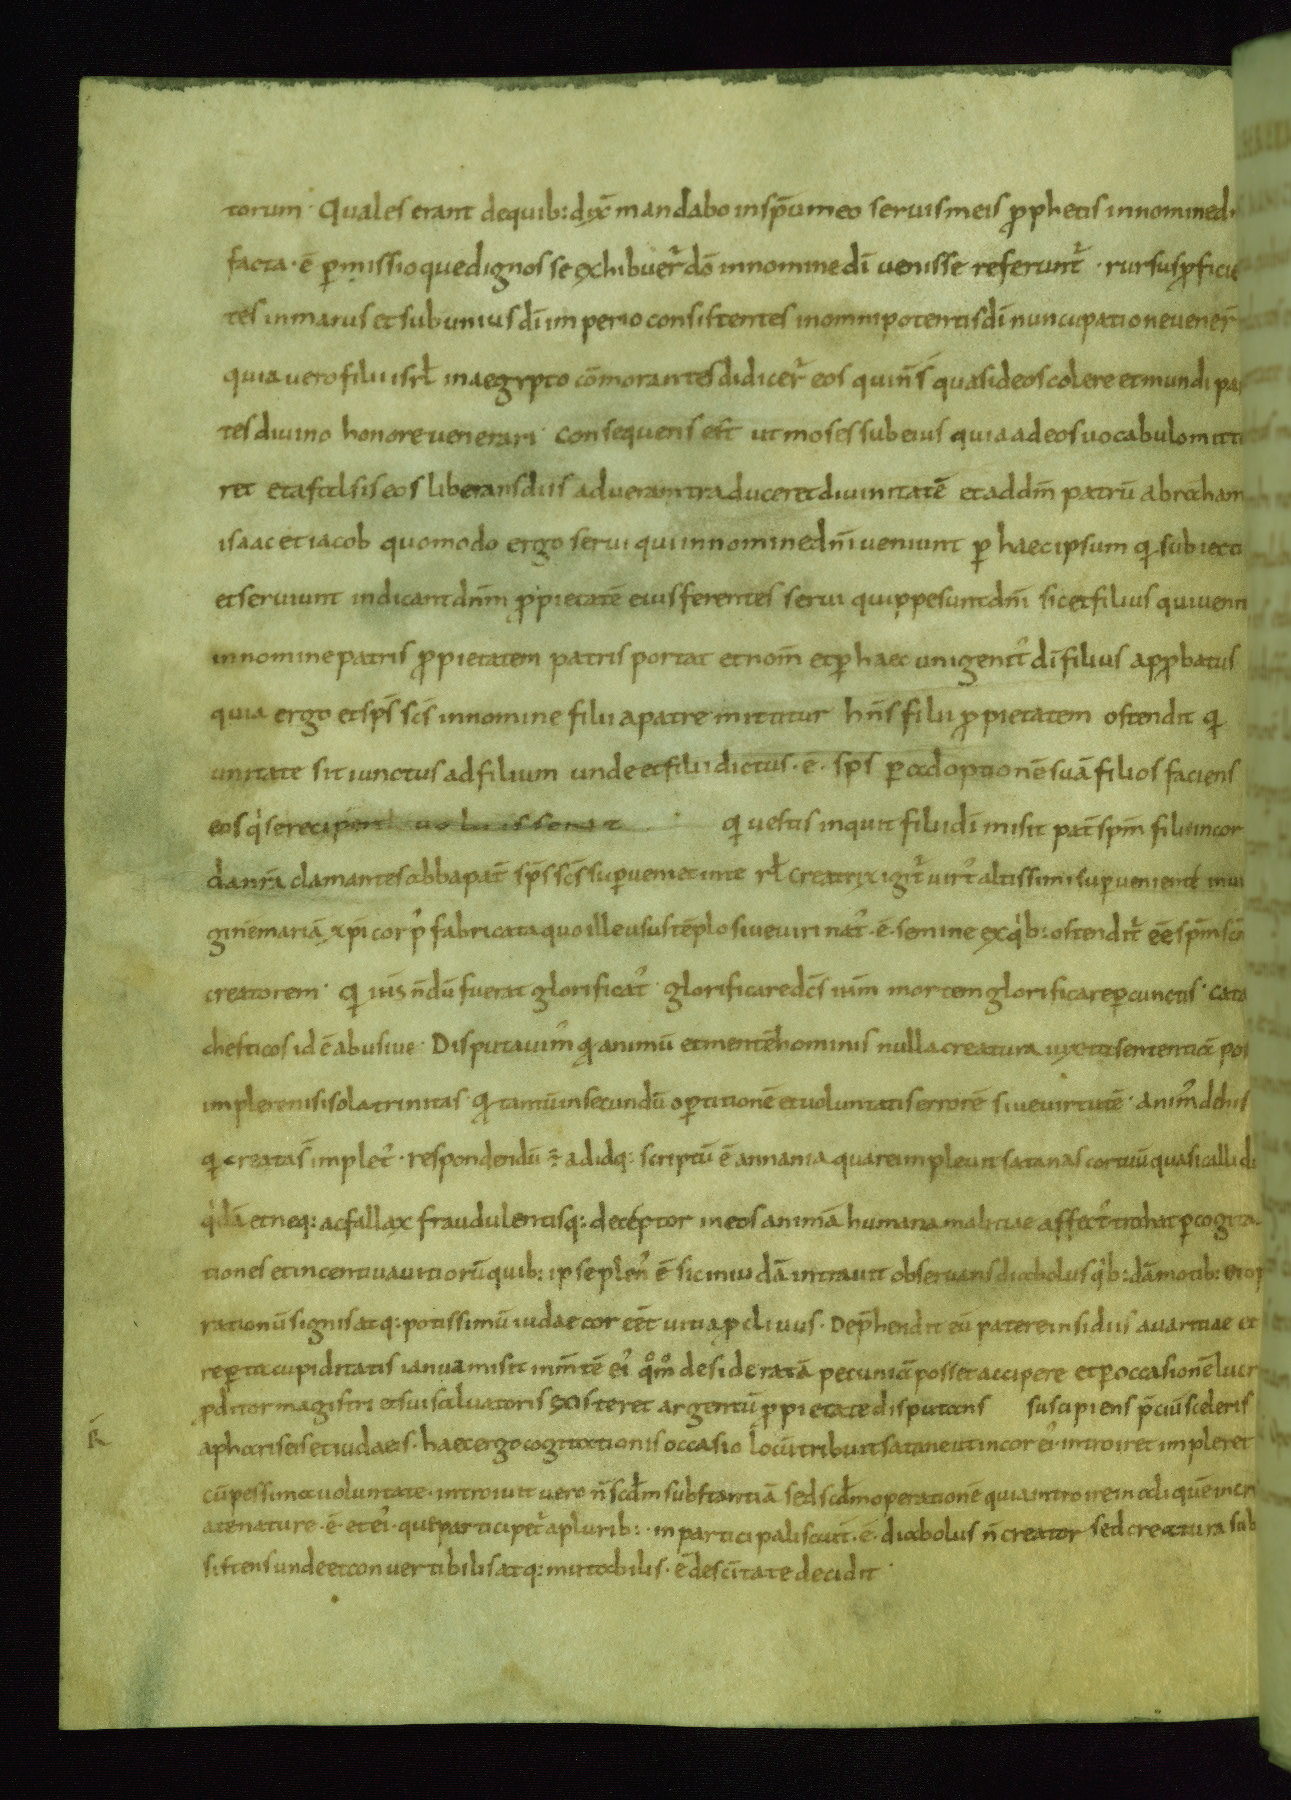 torum · Quales erant dequib: dyx̄ mandabo insp̄u meo seruis meis p̄phetis innomine
facta · ē p̄missio que dignos se exhibuer̄ dō innomine dī uenisse referunt̄ · rursus
tes inmarus et sub unius dī imperio consistentes inomnipotentis dī nuncupatione uener̄
quia uero filii isrł inaegypto cōmorantes didicer̄ eos quin̄s quasi deos colere et mundi
tes diuino honore uenerari · consequens est ut moses sub eius quia ad eos uocabulo
ret et afalsis eos liberans diis adueram traduceret diuinitatē et addm̄ patrū abraham
isaac et iacob quomodo ergo serui qui innomine dn̄i ueniunt p̄ haec ipsum q̄ subiecti
et seruiunt indicant dn̄m p̄pietatē eius ferentes serui quippe sunt dn̄i sic et filius qui uenit
innomine patris p̄pietatem patris portat et nom̄ et p̄ haec unigenit̉ dī filius app̄batus
quia ergo et sp̄s sc̄s innomine filii apatre mittitur hn̄s filii p̄pietatem ostendit q̄
unitate sit iunctus ad filium unde et filii dictus · ē · sp̄s p̄ adoptionē suā filios faciens
eos q̉ se recipere uoluissent q̄ uestis inquit filii dī misit pat̄ sp̄m filii incor
da nr̄a clamantes abba pat̄ sp̄s sc̄s sup̄ueniet inte rł creatrix igit̄ uirt̉ altissimi
ginē mariā xp̄i corp̉ fabricata quo ille usus tēplo siue uiri nat̉ · ē · semine ex q̉b: ostendit̄ ēē sp̄m
creatorem · q̄ iūs n̄dū fuerat glorificat̉ · glorificare dc̄s iūm mortem glorificare p̄ cunctis ·
chesticos id ē abusiue · Disputauim̉ q̄ animū et mentē hominis nulla creatura iuxta sententiā
implere nisi sola trinitas q̄ tantū insecundū op̄titionē et uoluntatis errorē siue uirtutē ·
q̄ creatas implet̉ · respondendū ÷ ad idq: scriptū ē annania quare impleuit satanas cor tuū quasi
q̉dā et neq: ac fallax fraudulentisq: deceptor in eos animā humana malitiae
tiones et incentiua uitiorū quib: ipse plen̉ ē sic iniudā intrauit obseruans diabolus q̉b: dā motib:
rationū signis atq: potissimū iudae cor eēt uitia p̄cliuus · Dep̄hendit eū patere insidiis auaritiae et
rep̄ta cupiditatis ianua misit inm̄tē eỉ q̊m̊ desideratā pecuniā posset accipere et p̄ occasionē
p̄ditor magistri et sui saluatoris sisteret argentū p̄pietate disputans suscipiens p̄ciū sceleris
apharisaeis et iudaeis · haec ergo cogitationis occasio locū tribuit satane ut incor eỉ introiret impleret
R̄
cū pessima uoluntate · introiuit uero n̄ scd̄m substantiā sed scd̄m operationē quia introire
ate nature · ē · et eỉ · que participet̄ apluib: · inparticipalis autē · ē · diabolus n̄ creator sed creatura
sistens unde et conuertibilis atq: mutabilis · ē descītate decidit ·